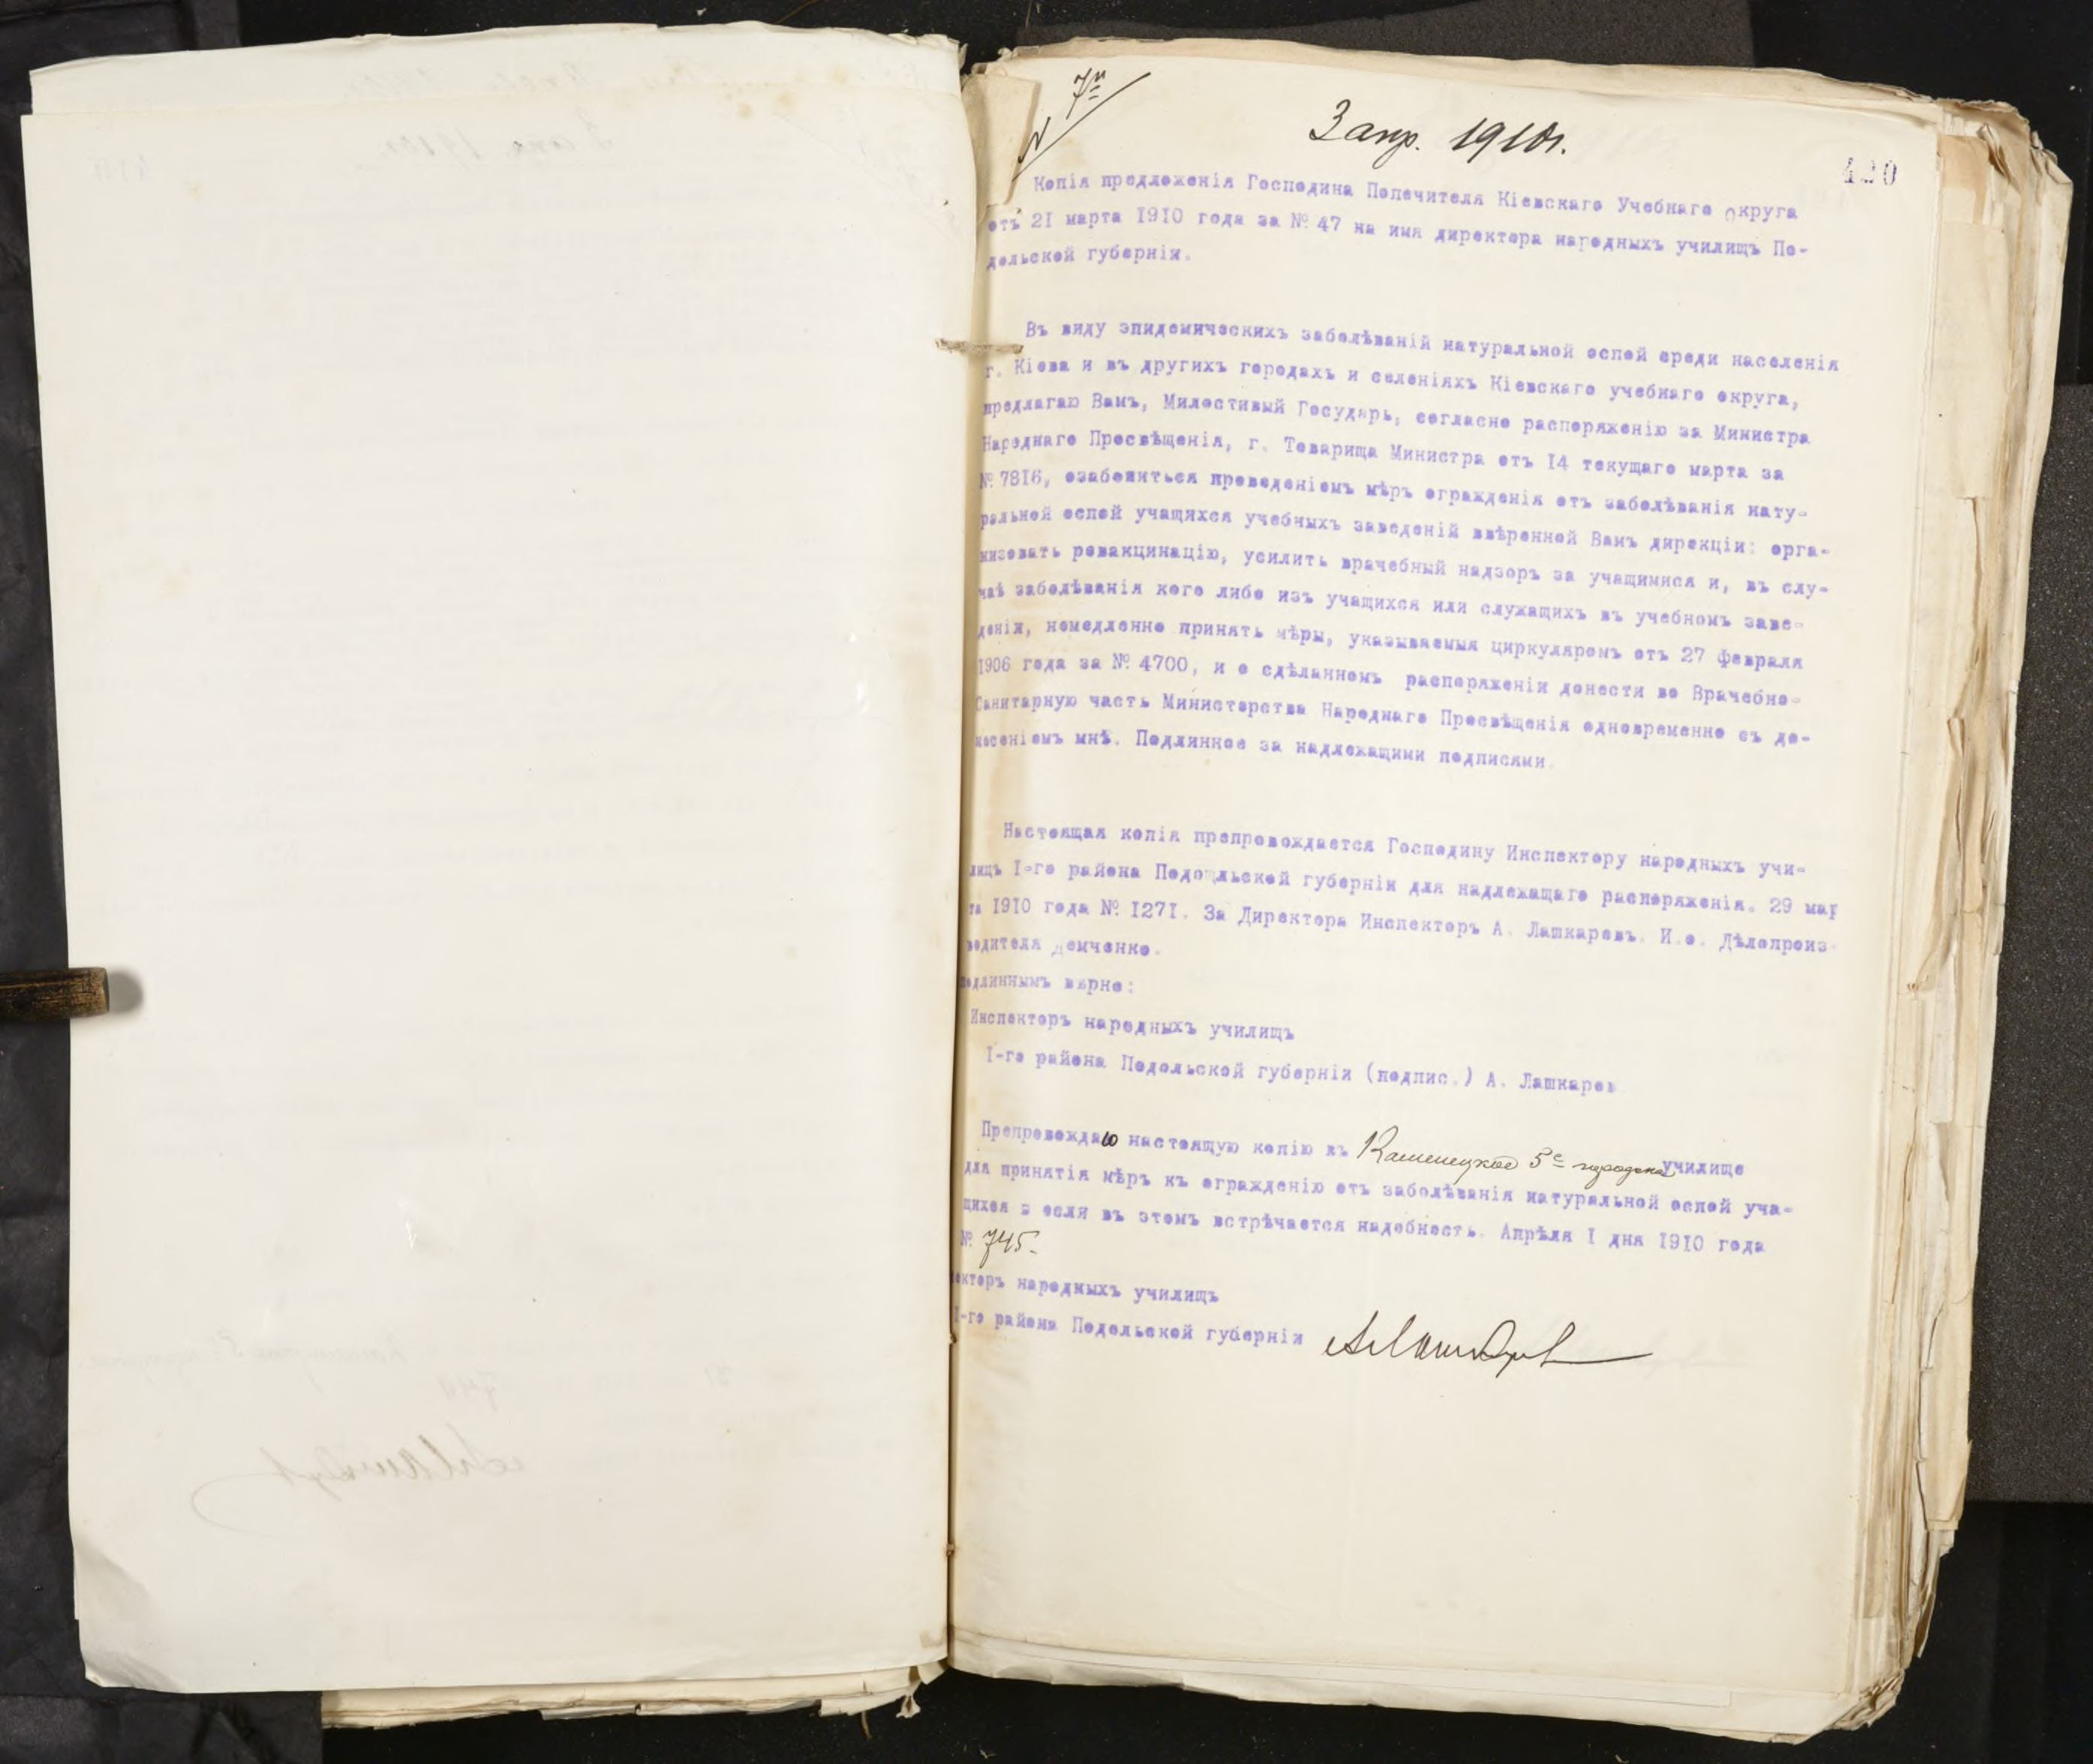 № 7й
3 апр. 1910г.
420
Копія предложенія Господина Попечителя Кіевскаго Учебнаго Округа
отъ 21 марта 1910 года за № 47 на имя директора народныхъ училищъ По-
дольской губерніи.
Въ виду эпидемическихъ заболѣваній натуральной оспой среди населенія
г. Кіева и въ другихъ городахъ и селеніяхъ Кіевскаго учебнаго округа,
предлагаю Вамъ, Милостивый Государь, согласно распоряженію за Министра
Народнаго Просвѣщенія, г. Товарища Министра отъ 14 текущаго марта за
№ 7816, озаботиться проведеніемъ мѣръ огражденія отъ заболѣванія нату-
ральной оспой учащихся учебныхъ заведеній ввѣренной Вамъ дирекціи: орга-
низовать ревакцинацію, усилить врачебный надзоръ за учащимися и, въ слу-
чаѣ заболѣванія кого либо изъ учащихся или служащихъ въ учебномъ заве-
деніи, немедленно принять мѣры, указываемыя циркуляромъ отъ 27 февраля
1906 года за № 4700, и о сдѣланномъ распоряженіи донести во Врачебно-
Санитарную часть Министерства Народнаго Просвѣщенія одновременно съ до-
несеніемъ мнѣ. Подлинное за надлежащими подписями.
Настоящая копія препровождается Господину Инспектору народныхъ учи-
лищъ I-го района Подощльской губерніи для надлежащаго распоряженія. 29 мар
та 1910 года № 1271. За Директора Инспекторъ А. Лашкаревъ. И.о. Дѣлопроиз-
водителя Демченко.
подлиннымъ вѣрно:
Инспекторъ народныхъ училищъ
I-го района Подольской губерніи (подпис.) А. Лашкарев
Препровождаю настоящую копію въ Каменецкое 5е городское училище
для принятія мѣръ къ огражденію отъ заболѣванія натуральной оспой уча-
щихся если въ этомъ встрѣчается надобность. Апрѣля I дня 1910 года
№ 745.
екторъ народныхъ училищъ
I-го района Подольской губерніи АЛашкарев